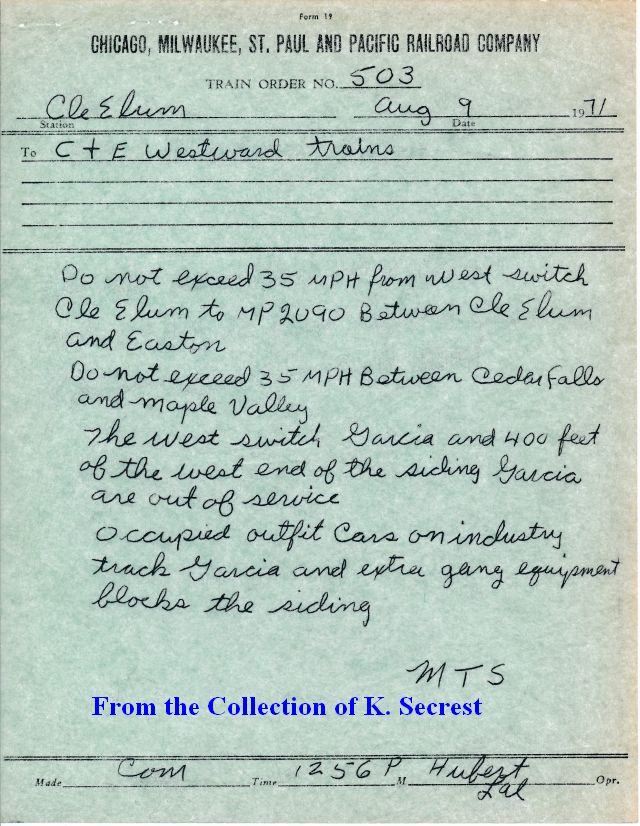 Form 19
CHICAGO, MILWAUKEE, ST. PAUL AND PACIFIC RAILROAD COMPANY
TRAIN ORDER NO. 503
Cle Elum Aug 9 1971
Station Date
To C + E Westward trains
Do not exceed 35 MPH from west switch
Cle Elum to MP 2090 Between Cle Elum
and Easton
Do not exceed 35 MPH Between Cedar Falls
and maple Valley
The west switch Garcia and 400 feet
of the west end of the siding Garcia
are out of service
Occupied outfit Cars on industry
track Garcia and extra gang equipment
blocks the siding
M T S
From the Collection of K. Secrest
Made Com Time 1256 P M Hubert Opr.